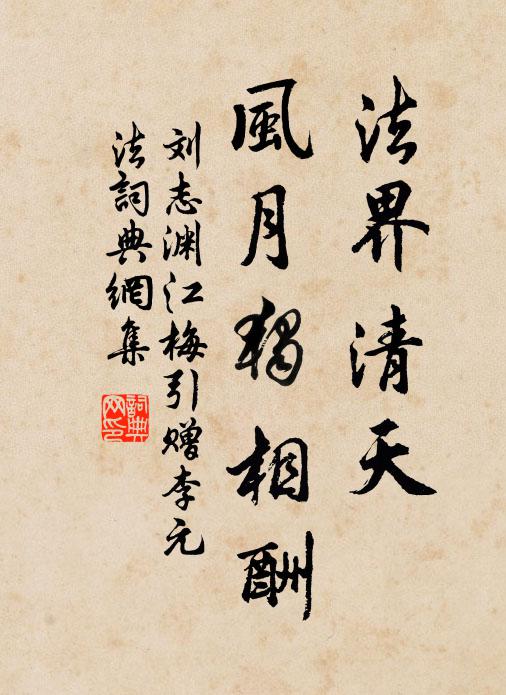 法界清天
風月独相酬
刘志渊江梅引赠李元
法詞典網集
詞典網印